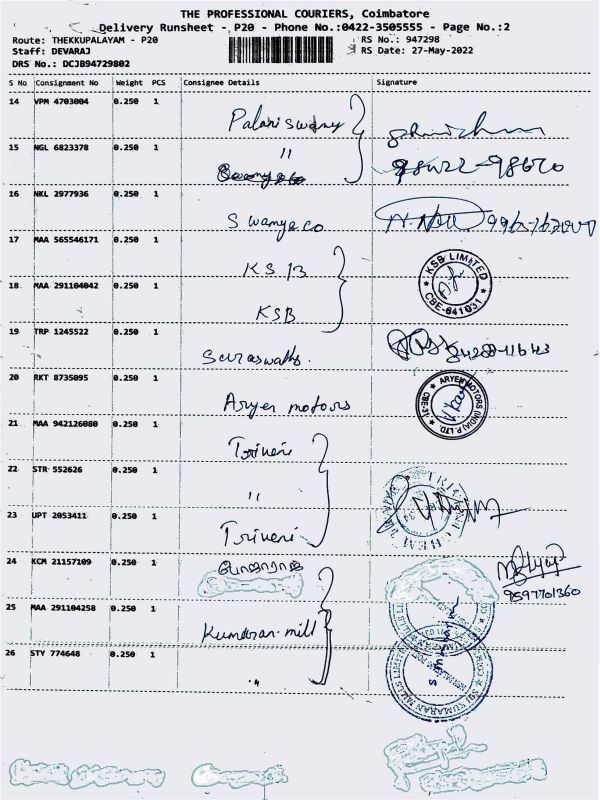 THE PROFESSIONAL COURIERS, Coimbatore
Delivery Runsheet - P20 - Phone No.:0422-3505555 - Page No.:2
Route: THEKKUPALAYAM - P20
Staff: DEVARAJ
DRS No.: DCJB94729802
RS No.: 947298
RS Date: 27-May-2022
S No. Consignment No Weight PCS Consignee Details Signature
14 VPM 4703004 0.250 1 Palaniswamy
15 NGL 6823378 0.250 1 "
16 NKL 2977936 0.250 1 Swamy&co
17 MAA 565546171 0.250 1 KSB
KSB LIMITED
CBE-641031
18 MAA 291104042 0.250 1 KSB
19 TRP 1245522 0.250 1
20 RKT 8735095 0.250 1 Aryen motors
ARYEN MOTORS (INDIA) P. LTD.
21 MAA 942126080 0.250 1 Triveni
22 STR 552626 0.250 1 "
23 UPT 2053411 0.250 1 Triveni
24 KCM 21157109 0.250 1
9597701360
25 MAA 291104258 0.250 1 Kumaran mill
26 STY 774648 0.250 1 "
SRI KUMARAN MILLS LIMITED